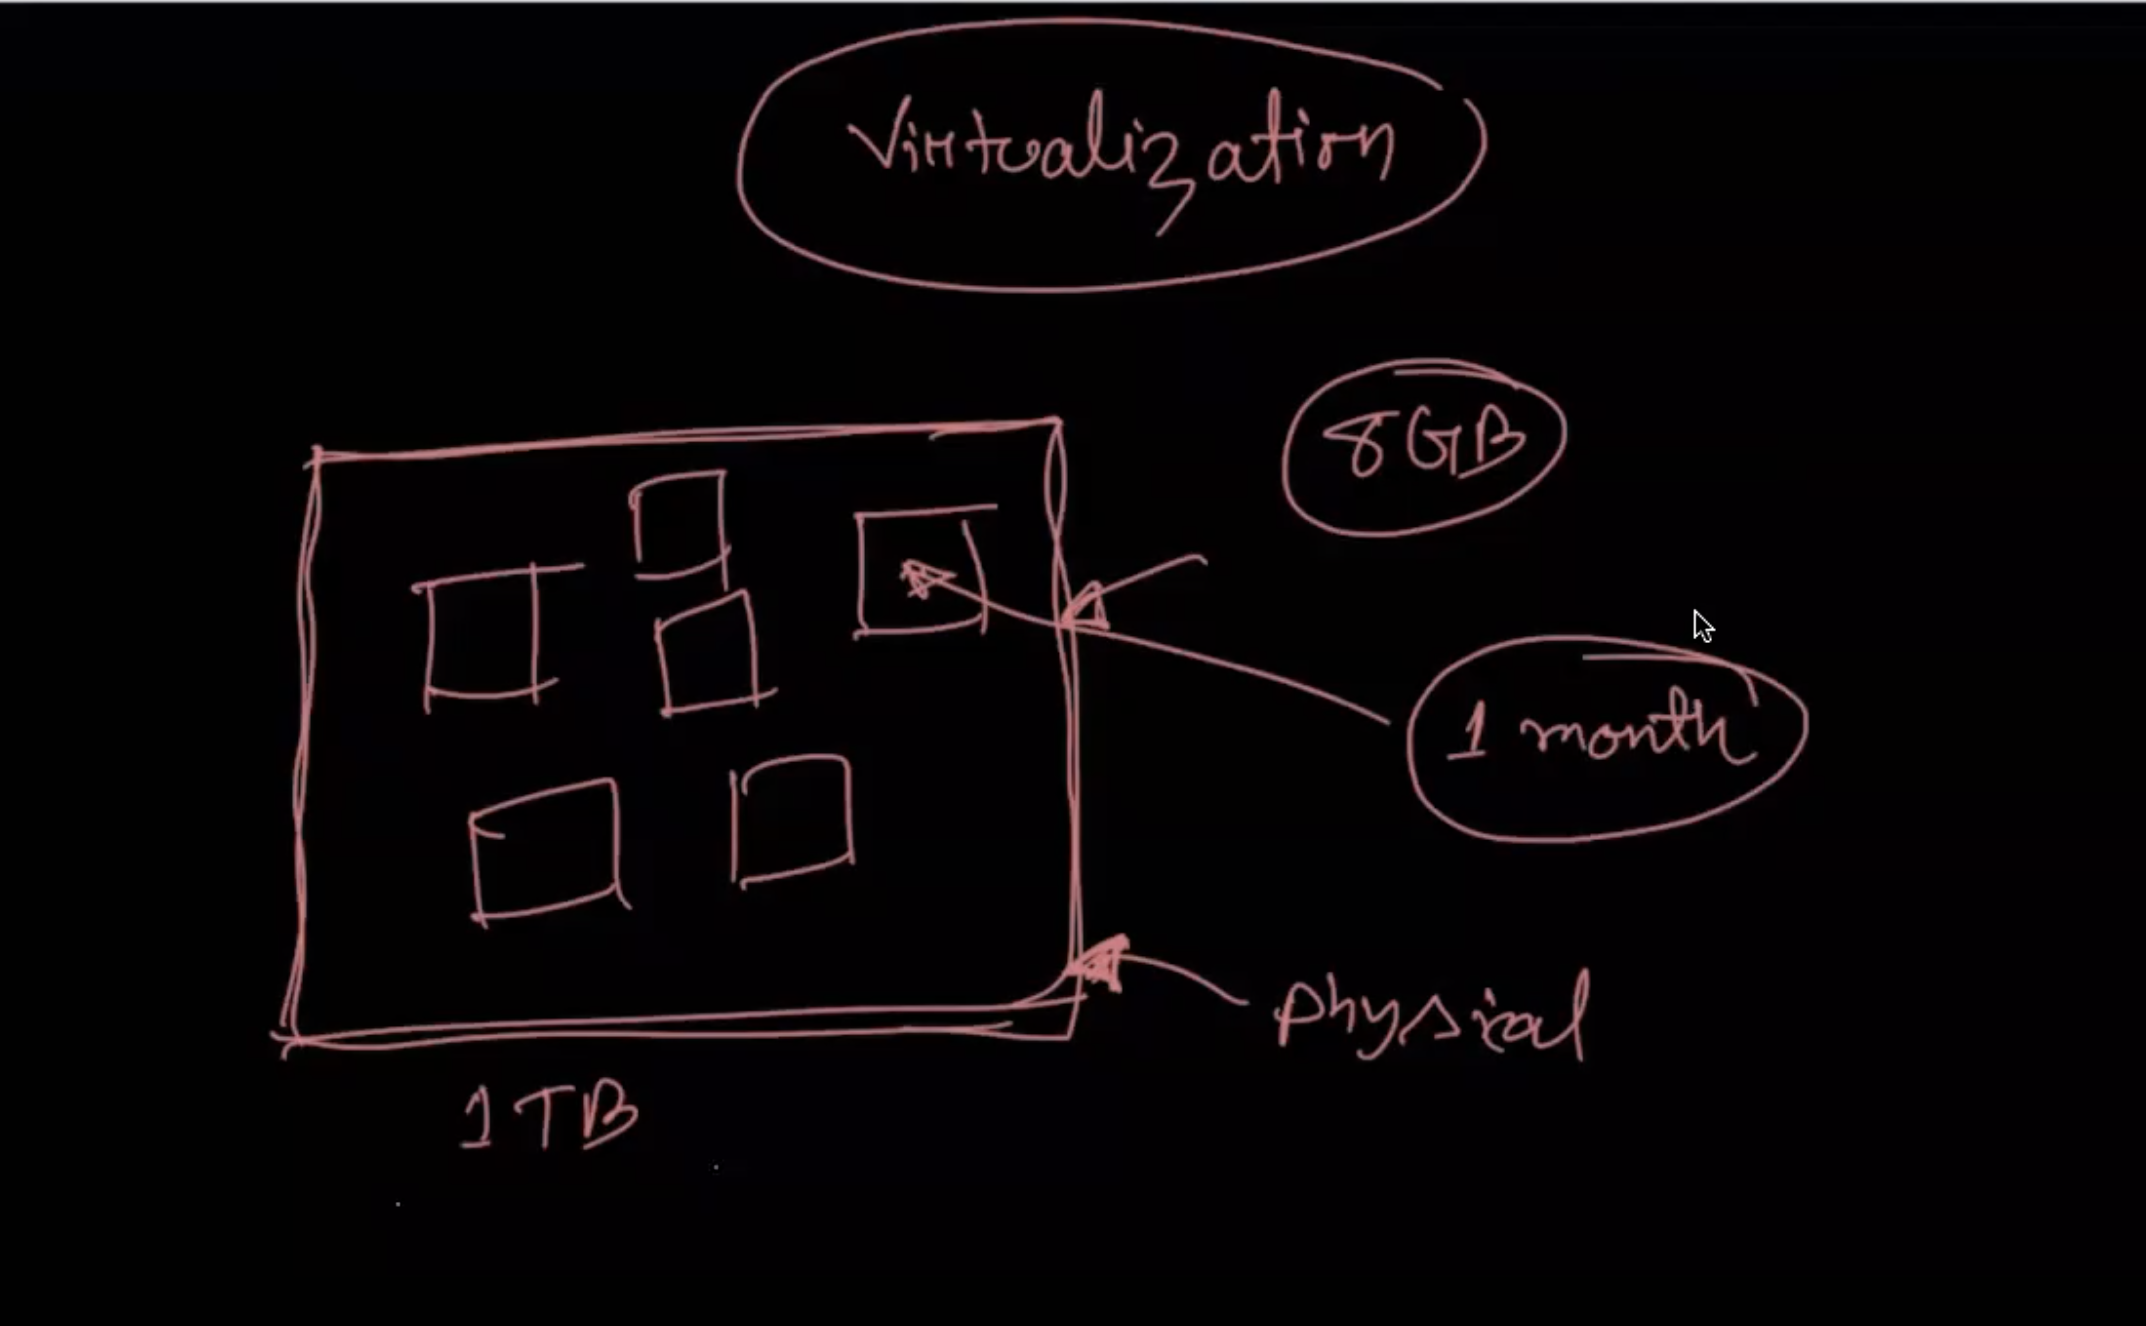 Virtualization
8GB
1 month
physical
1TB